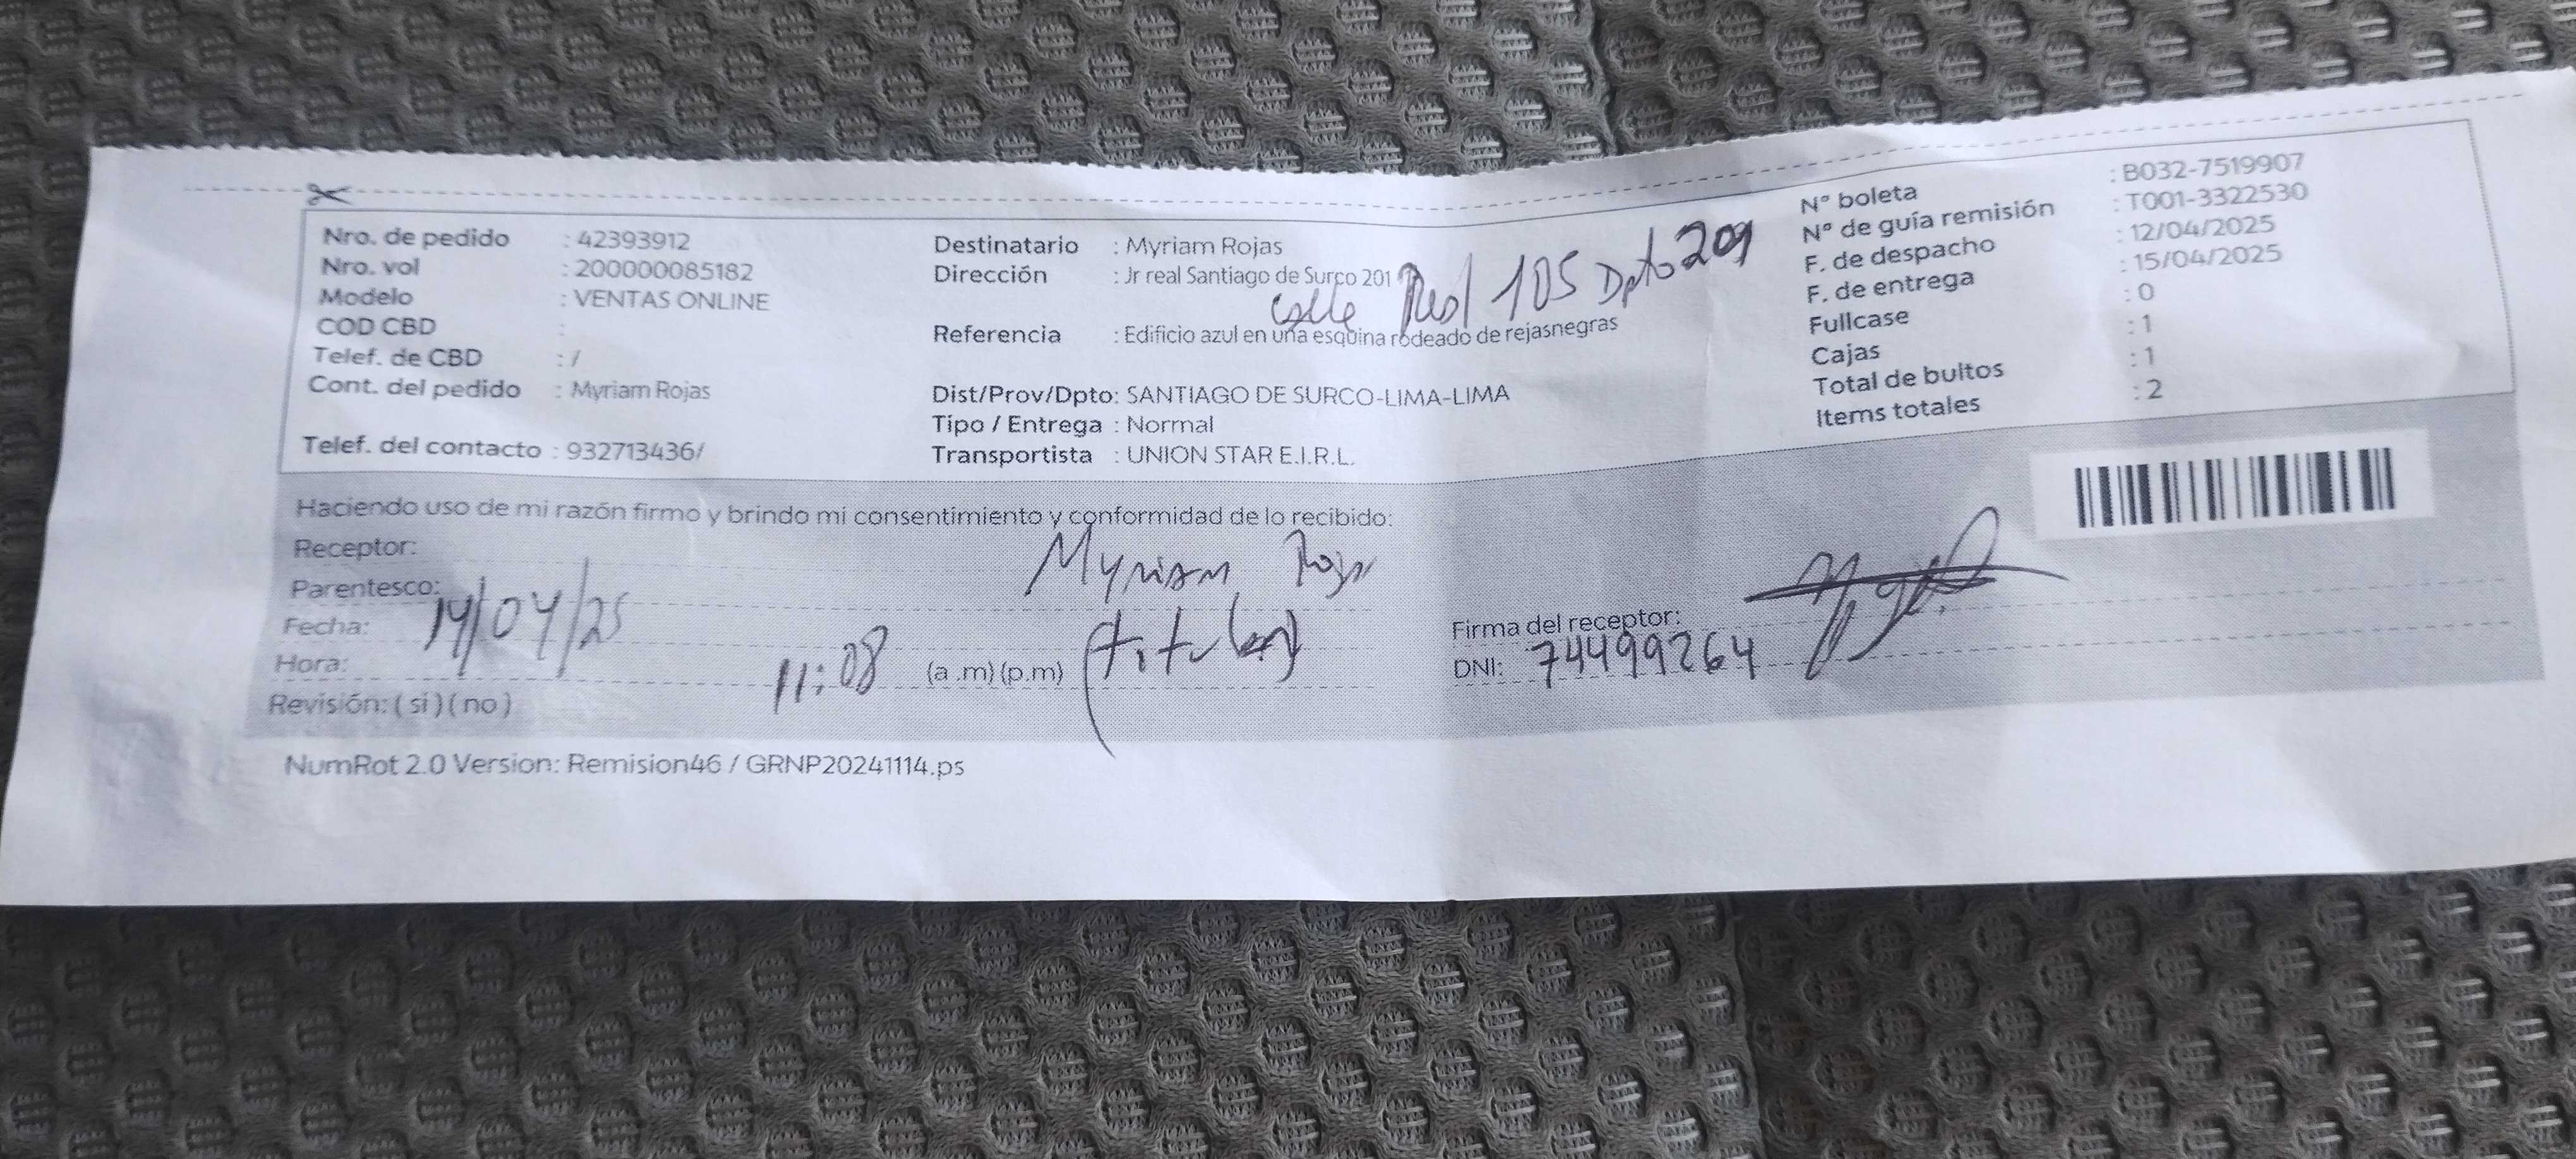 Nro. de pedido : 42393912
Nro. vol : 200000085182
Modelo : VENTAS ONLINE
COD CBD :
Telef. de CBD : /
Cont. del pedido : Myriam Rojas
Telef. del contacto : 932713436/
Destinatario : Myriam Rojas
Dirección : Jr real Santiago de Surco 201
calle Real 105 Dpto 209
Referencia : Edificio azul en una esquina rodeado de rejasnegras
Dist/Prov/Dpto: SANTIAGO DE SURCO-LIMA-LIMA
Tipo / Entrega : Normal
Transportista : UNION STAR E.I.R.L.
N° boleta : B032-7519907
N° de guía remisión : T001-3322530
F. de despacho : 12/04/2025
F. de entrega : 15/04/2025
Fullcase : 0
Cajas : 1
Total de bultos : 1
Items totales : 2
Haciendo uso de mi razón firmo y brindo mi consentimiento y conformidad de lo recibido:
Receptor: Myriam Rojas
Parentesco: (titular)
Fecha: 14/04/25
Hora: 11:08 (a .m) (p.m)
Revisión: ( si ) ( no )
Firma del receptor:
DNI: 74499264
NumRot 2.0 Version: Remision46 / GRNP20241114.ps